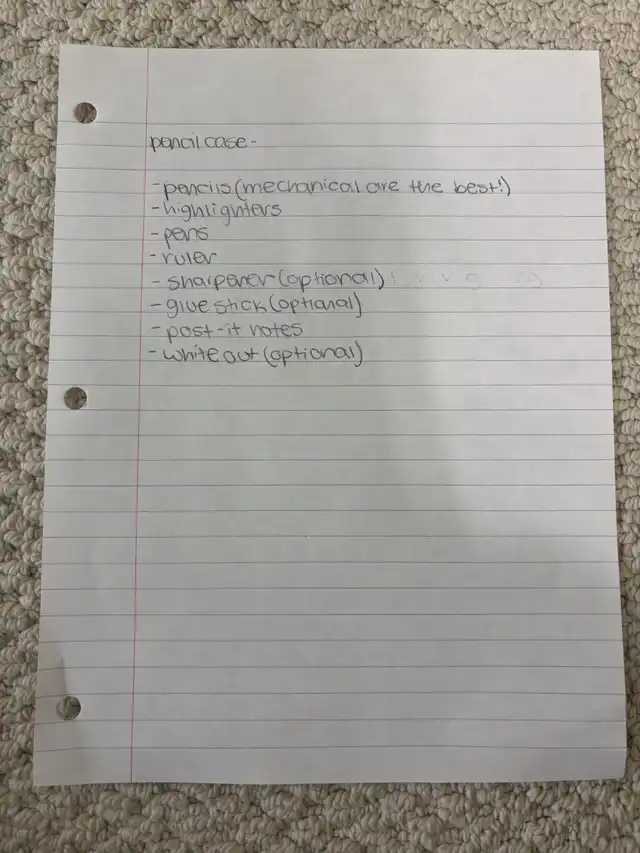 pencil case -
-pencils (mechanical are the best!)
-highlighters
-pens
-ruler
-sharpener (optional)
-glue stick (optional)
-post-it notes
-white out (optional)